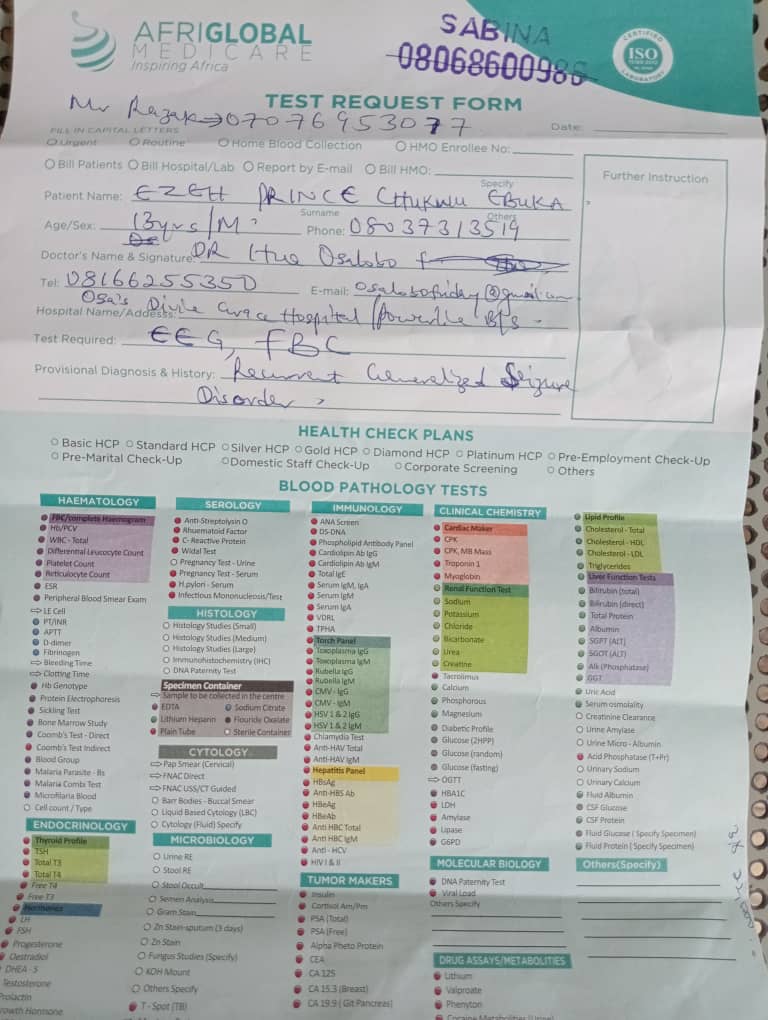 AFRIGLOBAL
MEDICARE
Inspiring Africa
SABINA
08068600986
CERTIFIED
ISO
LABORATORY
TEST REQUEST FORM
Mr Razak→07076953077
FILL IN CAPITAL LETTERS
Date:
Urgent Routine Home Blood Collection HMO Enrollee No:
Bill Patients Bill Hospital/Lab Report by E-mail Bill HMO:
Specify
Further Instruction
Patient Name: EZEH PRINCE CHUKWU EBUKA
Surname Others
Age/Sex: 13yrs/M Phone: 08037313519
Doctor's Name & Signature: DR Osalobo
Tel: 08166255350 E-mail: osalobofriday@gmail.com
Hospital Name/Addesss: Osa's Divine Grace Hospital powerline
Test Required: EEG, FBC
Provisional Diagnosis & History: Recurrent Generalized Seizure
Disorder
HEALTH CHECK PLANS
Basic HCP Standard HCP Silver HCP Gold HCP Diamond HCP Platinum HCP Pre-Employment Check-Up
Pre-Marital Check-Up Domestic Staff Check-Up Corporate Screening Others
BLOOD PATHOLOGY TESTS
HAEMATOLOGY
FBC/complete Haemogram
Hb/PCV
WBC - Total
Differential Leucocyte Count
Platelet Count
Reticulocyte Count
ESR
Peripheral Blood Smear Exam
LE Cell
PT/INR
APTT
D-dimer
Fibrinogen
Bleeding Time
Clotting Time
Hb Genotype
Protein Electrophoresis
Sickling Test
Bone Marrow Study
Coomb's Test - Direct
Coomb's Test Indirect
Blood Group
Malaria Parasite - Rs
Malaria Combi Test
Microfilaria Blood
Cell count / Type
ENDOCRINOLOGY
Thyroid Profile
TSH
Total T3
Total T4
Free T4
Free T3
Hormones
LH
FSH
Progesterone
Oestradiol
DHEA - S
Testosterone
Prolactin
Growth Hormone
SEROLOGY
Anti-Streptolysin O
Rhuematoid Factor
C- Reactive Protein
Widal Test
Pregnancy Test - Urine
Pregnancy Test - Serum
H.pylori - Serum
Infectious Mononucleosis/Test
HISTOLOGY
Histology Studies (Small)
Histology Studies (Medium)
Histology Studies (Large)
Immunohistochemistry (IHC)
DNA Paternity Test
Specimen Container
Sample to be collected in the centre
EDTA Sodium Citrate
Lithium Heparin Flouride Oxalate
Plain Tube Sterile Container
CYTOLOGY
Pap Smear (Cervical)
FNAC Direct
FNAC USS/CT Guided
Barr Bodies - Buccal Smear
Liquid Based Cytology (LBC)
Cytology (Fluid) Specify
MICROBIOLOGY
Urine RE
Stool RE
Stool Occult
Semen Analysis
Gram Stain
Zn Stain-sputum (3 days)
Zn Stain
Fungus Studies (Specify)
KOH Mount
Others Specify
T - Spot (TB)
IMMUNOLOGY
ANA Screen
DS-DNA
Phospholipid Antibody Panel
Cardiolipin Ab IgG
Cardiolipin Ab IgM
Total IgE
Serum IgM, IgA
Serum IgM
Serum IgA
VDRL
TPHA
Torch Panel
Toxoplasma IgG
Toxoplasma IgM
Rubella IgG
Rubella IgM
CMV - IgG
CMV - IgM
HSV 1 & 2 IgG
HSV 1 & 2 IgM
Chlamydia Test
Anti-HAV Total
Anti-HAV IgM
Hepatitis Panel
HBsAg
Anti-HBS Ab
HBeAg
HBeAb
Anti HBC Total
Anti HBC IgM
Anti - HCV
HIV I & II
TUMOR MAKERS
Insulin
Cortisol Am/Pm
PSA (Total)
PSA (Free)
Alpha Pheto Protein
CEA
CA 125
CA 15.3 (Breast)
CA 19.9 ( Git Pancreas)
CLINICAL CHEMISTRY
Cardiac Maker
CPK
CPK, MB Mass
Troponin 1
Myoglobin
Renal Function Test
Sodium
Potassium
Chloride
Bicarbonate
Urea
Creatine
Tacrolimus
Calcium
Phosphorous
Magnesium
Diabetic Profile
Glucose (2HPP)
Glucose (random)
Glucose (fasting)
OGTT
HBA1C
LDH
Amylase
Lipase
G6PD
MOLECULAR BIOLOGY
DNA Paternity Test
Viral Load
Others Specify
DRUG ASSAYS/METABOLITIES
Lithium
Valproate
Phenyton
Cocaine Metabolities (Urine)
Lipid Profile
Cholesterol - Total
Cholesterol - HDL
Cholesterol - LDL
Triglycerides
Liver Function Tests
Bilirubin (total)
Bilirubin (direct)
Total Protein
Albumin
SGPT (ALT)
SGOT (ALT)
Alk (Phosphatase)
GGT
Uric Acid
Serum osmolality
Creatinine Clearance
Urine Amylase
Urine Micro - Albumin
Acid Phosphatase (T+Pr)
Urinary Sodium
Urinary Calcium
Fluid Albumin
CSF Glucose
CSF Protein
Fluid Glucose ( Specify Specimen)
Fluid Protein ( Specify Specimen)
Others(Specify)